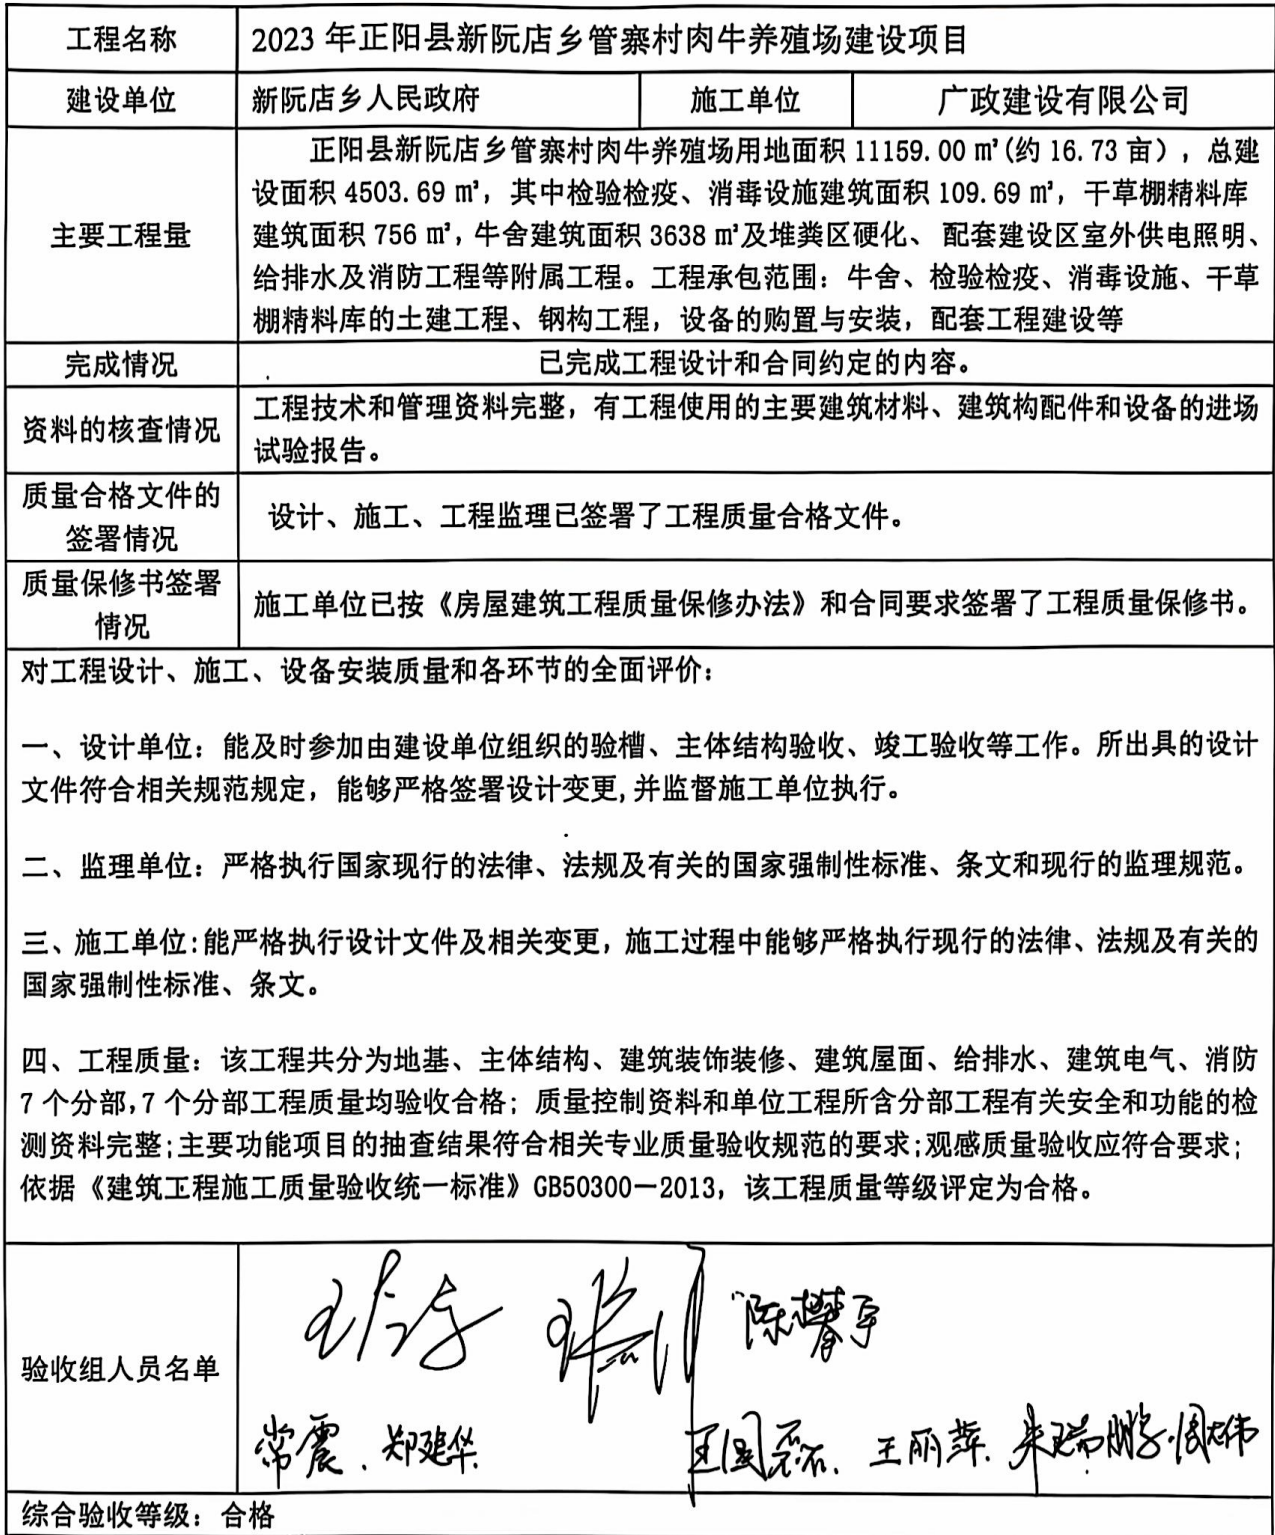 工程名称 2023 年正阳县新阮店乡管寨村肉牛养殖场建设项目
建设单位 新阮店乡人民政府 施工单位 广政建设有限公司
主要工程量
正阳县新阮店乡管寨村肉牛养殖场用地面积 11159.00 ㎡(约 16.73 亩），总建
设面积 4503.69 ㎡，其中检验检疫、消毒设施建筑面积 109.69 ㎡，干草棚精料库
建筑面积 756 ㎡，牛舍建筑面积 3638 ㎡及堆粪区硬化、 配套建设区室外供电照明、
给排水及消防工程等附属工程。工程承包范围：牛舍、检验检疫、消毒设施、干草
棚精料库的土建工程、钢构工程，设备的购置与安装，配套工程建设等
完成情况 已完成工程设计和合同约定的内容。
资料的核查情况
工程技术和管理资料完整，有工程使用的主要建筑材料、建筑构配件和设备的进场
试验报告。
质量合格文件的
签署情况
设计、施工、工程监理已签署了工程质量合格文件。
质量保修书签署
情况
施工单位已按《房屋建筑工程质量保修办法》和合同要求签署了工程质量保修书。
对工程设计、施工、设备安装质量和各环节的全面评价：
一、设计单位：能及时参加由建设单位组织的验槽、主体结构验收、竣工验收等工作。所出具的设计
文件符合相关规范规定，能够严格签署设计变更,并监督施工单位执行。
二、监理单位：严格执行国家现行的法律、法规及有关的国家强制性标准、条文和现行的监理规范。
三、施工单位:能严格执行设计文件及相关变更，施工过程中能够严格执行现行的法律、法规及有关的
国家强制性标准、条文。
四、工程质量：该工程共分为地基、主体结构、建筑装饰装修、建筑屋面、给排水、建筑电气、消防
7 个分部,7 个分部工程质量均验收合格；质量控制资料和单位工程所含分部工程有关安全和功能的检
测资料完整;主要功能项目的抽查结果符合相关专业质量验收规范的要求;观感质量验收应符合要求;
依据《建筑工程施工质量验收统一标准》GB50300—2013，该工程质量等级评定为合格。
验收组人员名单
陈攀宇
常震、郑建华 王国磊、王丽萍、朱瑞鹏 周大伟
综合验收等级：合格